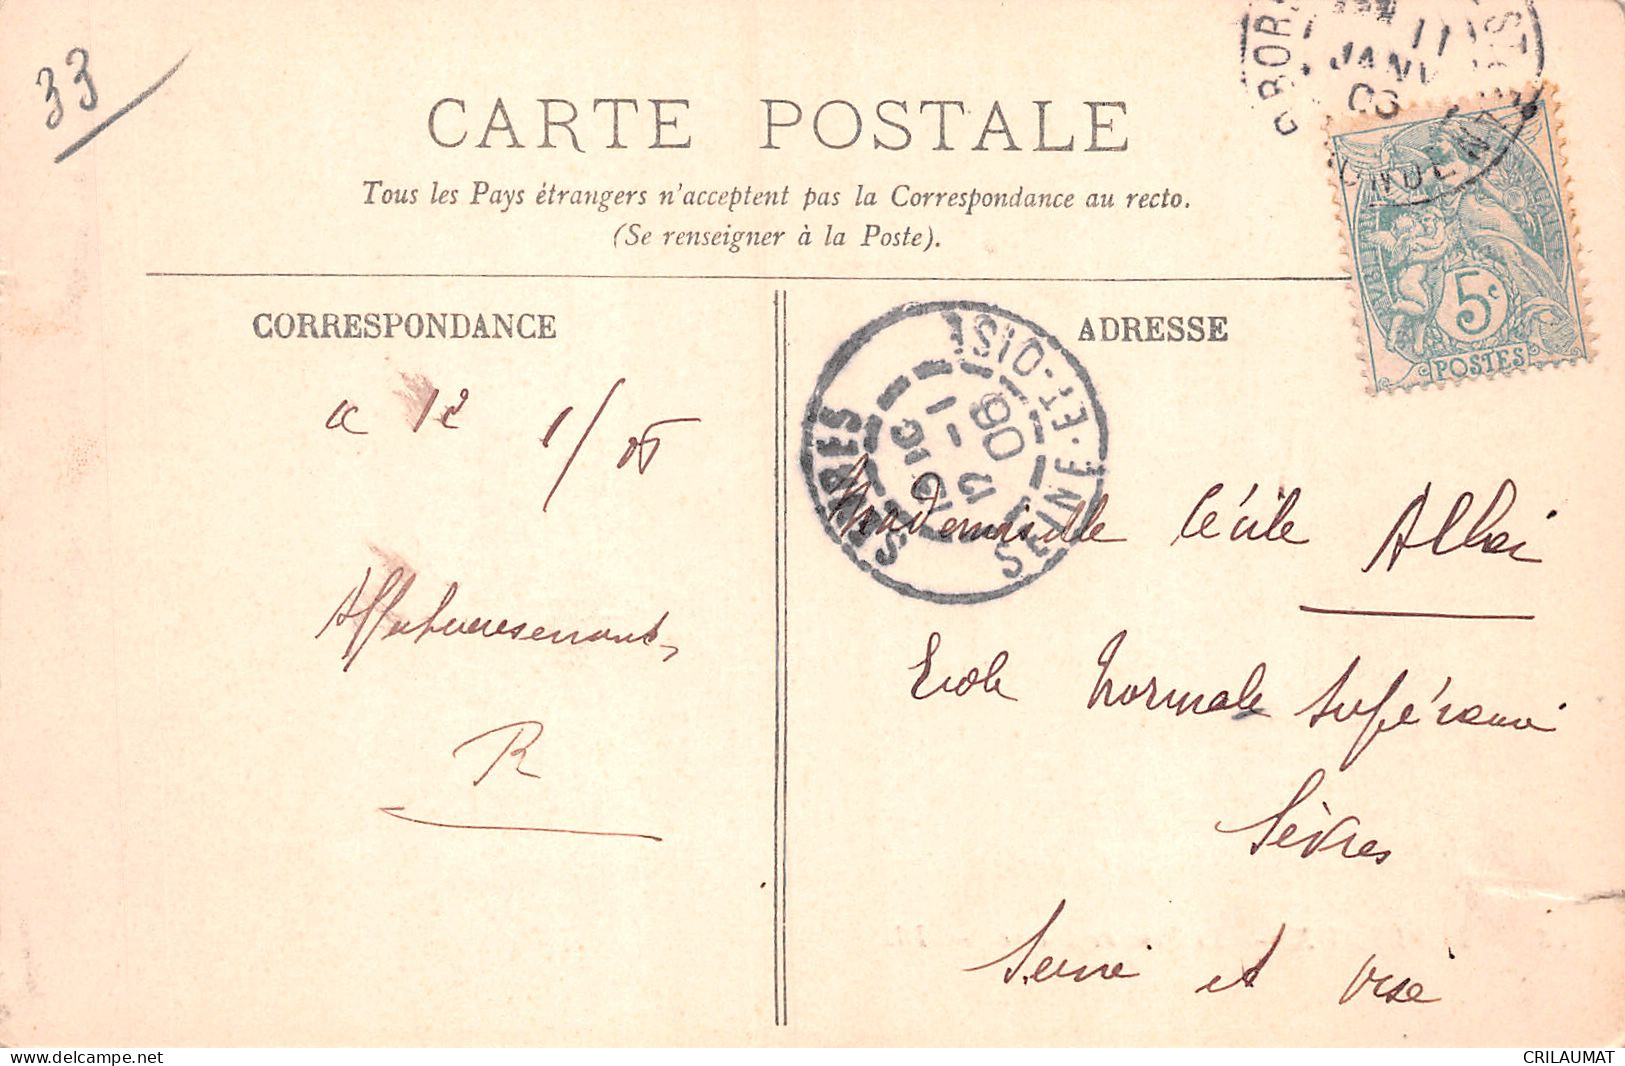 33
CARTE POSTALE
Tous les Pays étrangers n'acceptent pas la Correspondance au recto.
(Se renseigner à la Poste).
JANV
5c
POSTES
CORRESPONDANCE
ADRESSE
SEINE-ET-OISE
SÈVRES
12 - 1
06
a 12 1/05
Affectueusement,
R
Mademoiselle Cécile
Ecole Normale Supérieure
Sèvres
Seine et Oise
www.delcampe.net
CRILAUMAT